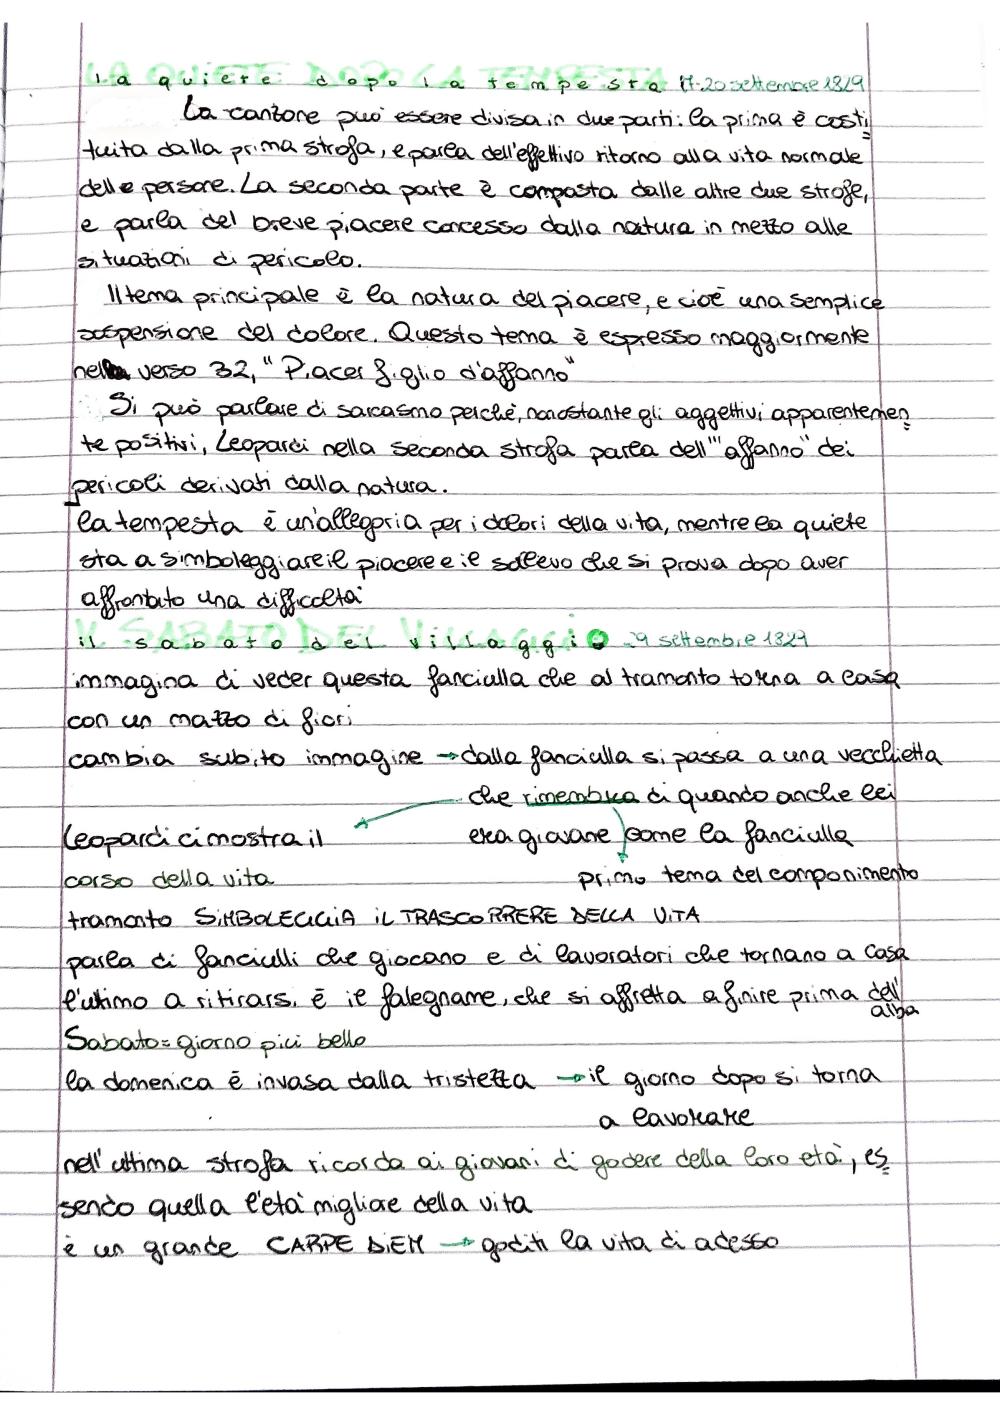 la quiete dopo la tempesta 17-20 settembre 1829
La canzone può essere divisa in due parti: la prima è costi
tuita dalla prima strofa, e parla dell'effettivo ritorno alla vita normale
delle persone. La seconda parte è composta dalle altre due strofe,
e parla del breve piacere concesso dalla natura in mezzo alle
situazioni di pericolo.
Il tema principale è la natura del piacere, e cioè una semplice
sospensione del dolore. Questo tema è espresso maggiormente
nella verso 32, "Piacer figlio d'affanno"
Si può parlare di sarcasmo perchè, nonostante gli aggettivi apparentemen
te positivi, Leopardi nella seconda strofa parla dell'"affanno" dei
pericoli derivati dalla natura.
la tempesta è un'allegoria per i dolori della vita, mentre la quiete
sta a simboleggiare il piacere e il sollievo che si prova dopo aver
affrontato una difficoltà
il sabato del villaggio 29 settembre 1829
immagina di veder questa fanciulla che al tramonto torna a casa
con un mazzo di fiori
cambia subito immagine → dalla fanciulla si passa a una vecchietta
che rimembra di quando anche lei
Leopardi ci mostra il era giovane come la fanciulla
corso della vita primo tema del componimento
tramonto SIMBOLEGGIA IL TRASCORRERE DELLA VITA
parla di fanciulli che giocano e di lavoratori che tornano a casa
l'ultimo a ritirarsi è il falegname, che si affretta a finire prima dell'
alba
Sabato = giorno più bello
la domenica è invasa dalla tristezza → il giorno dopo si torna
a lavorare
nell'ultima strofa ricorda ai giovani di godere della loro età, es
sendo quella l'età migliore della vita
è un grande CARPE DIEM → goditi la vita di adesso